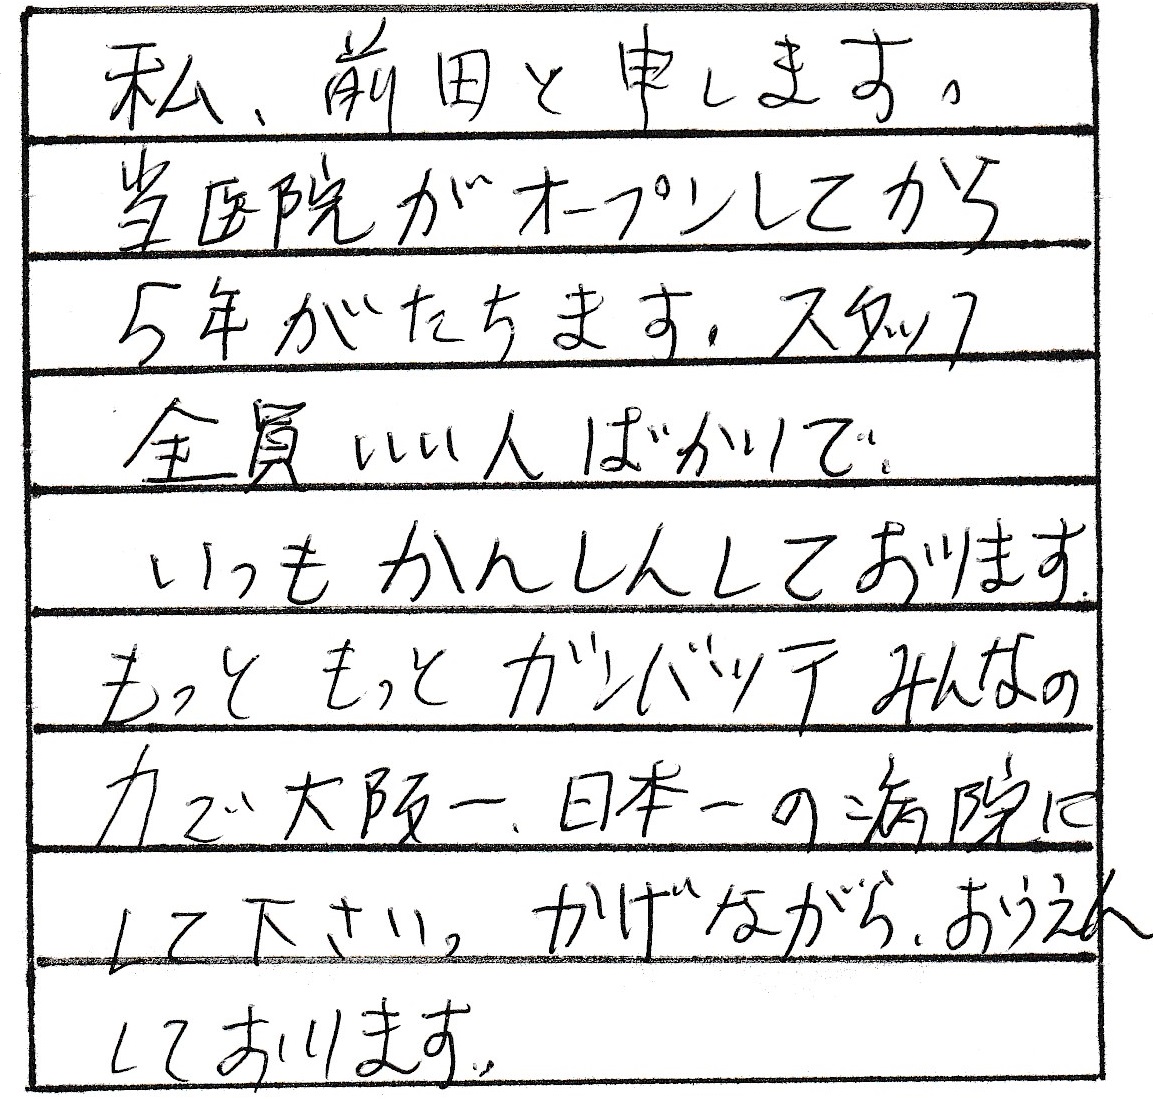 私、前田と申します。
当医院がオープンしてから
5年がたちます。スタッフ
全員いい人ばかりで、
いつもかんしんしております。
もっともっとガンバッテみんなの
力で大阪一、日本一の病院に
して下さい。かげながら、おうえん
しております。